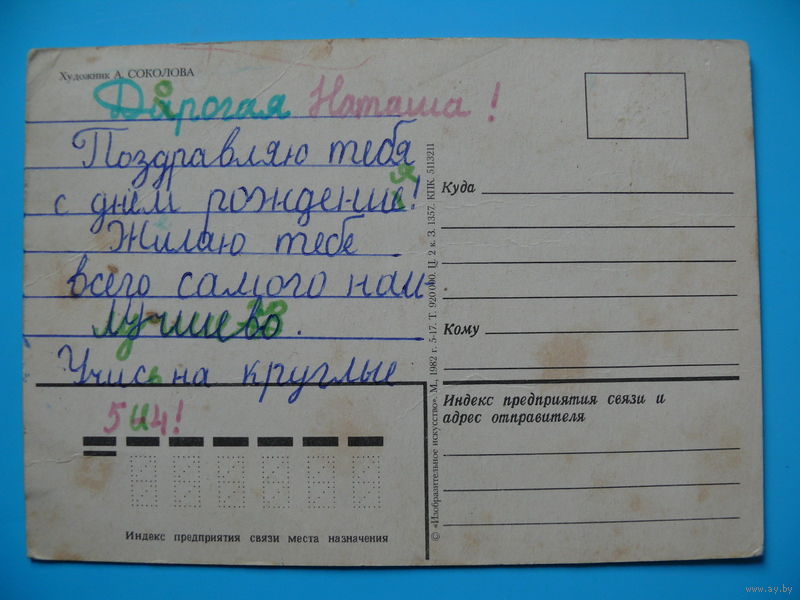 Художник А. СОКОЛОВА
Дорогая Наташа!
Поздравляю тебя
с днём рождения!
Жилаю тебе
всего самого наи
лучшево.
Учись на круглые
5 и 4!
Индекс предприятия связи места назначения
© «Изобразительное искусство». М., 1982 г. 5-17. Т. 920 000. Ц. 2 к. З. 1357. КПК. 5113211
Куда
Кому
Индекс предприятия связи и
адрес отправителя
www.ay.by